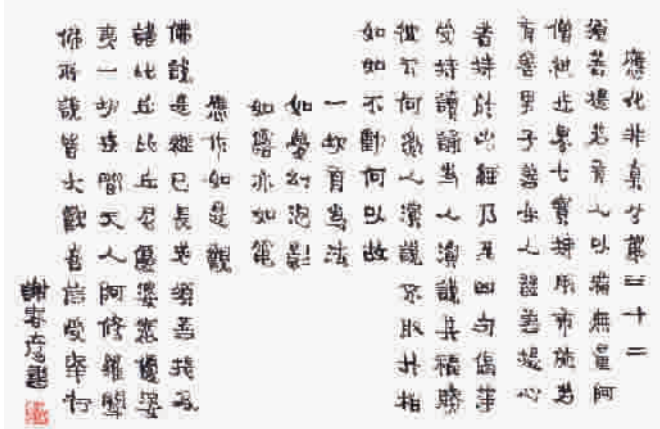 應化非真分第三十二
須菩提若有人以滿無量阿
僧祇世界七寶持用布施若
有善男子善女人發菩提心
者持於此經乃至四句偈等
受持讀誦為人演說其福勝
彼云何為人演說不取於相
如如不動何以故
一切有為法
如夢幻泡影
如露亦如電
應作如是觀
佛說是經已長老須菩提及
諸比丘比丘尼優婆塞優婆
夷一切世間天人阿修羅聞
佛所說皆大歡喜信受奉行
謝春彥書